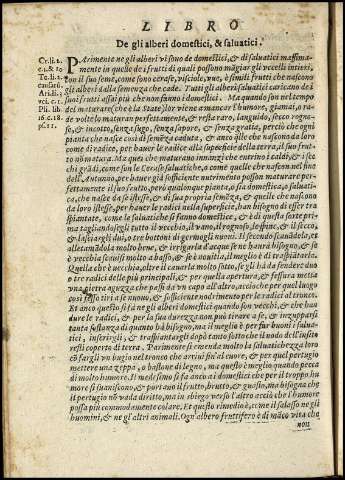 LIBRO
De gli alberi domestici, & saluatici.
Cr. li. 2.
c. 1. & 10
Te. li. 2.
causarũ.
Pli. lib.
16. c. 18.
PArimente ne gli alberi vi sono de domestici, & di saluatici massima-
mente in quelle de i frutti di quali possono mãgiar gli vccelli intieri,
con il suo seme, come sono cerase, visciole, vue, & simili frutti che nascono
gli alberi dalla semenza che cade. Tutti gli alberi saluatici caricano de i
suoi frutti assai piu che non fanno i domestici. Ma quando son nel tempo
de voltolo maturan perfettamente, & resta raro, languido, secco rogno-
so, & incotto, senza sugo, senza sapore, & senza gratia, perciò che ogni
pianta che nasce così di semẽza caduta, & anco quelle che nascono da loro
come di radice, per hauer le radici alla superficie della terra, il suo frut
to nõ matura. Ma que che maturano innanzi che entrino i caldi, & i sec
chi grãdi, come son le Cerase saluatiche, & come quelle che nascon nel fine
dell'Autunno, per hauer già sofficiente nutrimento possono maturare per-
fettamente il suo frutto, però qualonque pianta, o sia domestica, o saluati-
ca, che nasce da se istessa, & di sua propria semẽza, & quelle che nascon
da loro istesse, per hauer le radici nella superficie, han bisogno di esser tra
spiantate, come le saluatiche si fanno domestice, & è di questa sorte pri-
ma tagliando segli tutto il vecchio, il vano, il rognoso, lo fosso, & il secco,
& lasciargli dui, o tre bottoni di germogli noui. Il secondo scauãdola, et
allettandola molto bene, & irrigarla d'acque se ne haurà bisogno, & se
è vecchia segui si molto a basso, & se è nouitia, il meglio è di traspiãtarla.
Quella che è vecchia, oltre il cauarla molto sotto, se gli ha da fendere due
o tre radici delle più principali, & per quella apertura, & fessura metta
vna pietra aguzza che passi da vn capo all'altro, acciò che per quel luogo
così fesso tiri a se nuouo, & sofficiente nodrimento per le radici al tronco.
Et anco questo si fa ne gli alberi domestici quando son vecchi, & che han
dure le radici, & per la sua durezza non può tirare a se, & inzupparsi
tanta sostanza di quanto hà bisogno, ma il meglio è per far buoni i salua-
tici, inserirgli, & traspiantargli dopò tanto sotto che il nodo dell'insito
resti coperto di terra. Parimente si emenda molto la saluatichezza loro
cõ fargli vn bugio nel tronco che arriui fin'al cuore, & per quel pertugio
mettere una zeppa, o bastone di legno, ma questo è meglio quando pecca
di molto humore. Il medesimo si fa anco a i domestici che per il troppo hu
more si suaniscono, & portano il frutto brutto, & guasto, ma bisogna che
il pertugio nõ vada diritto, ma in sbiego verso l'altro acciò che l'humore
possa più commodamente colare. Et questo rimedio è, come il salasso ne gli
huomini, & ne gl'altri animali. Ogn'albero fruttifero è di mãco vita che
non